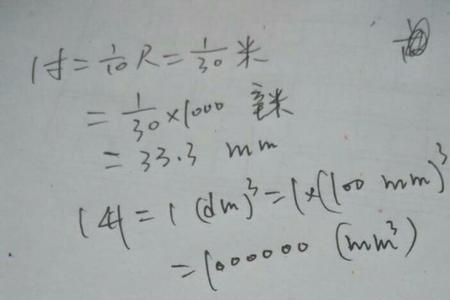 1寸=1/10尺=1/30米
=1/30×1000 毫米
=33.3 mm
1升=1 (dm)³=1×(100 mm)³
=1000000 (mm³)